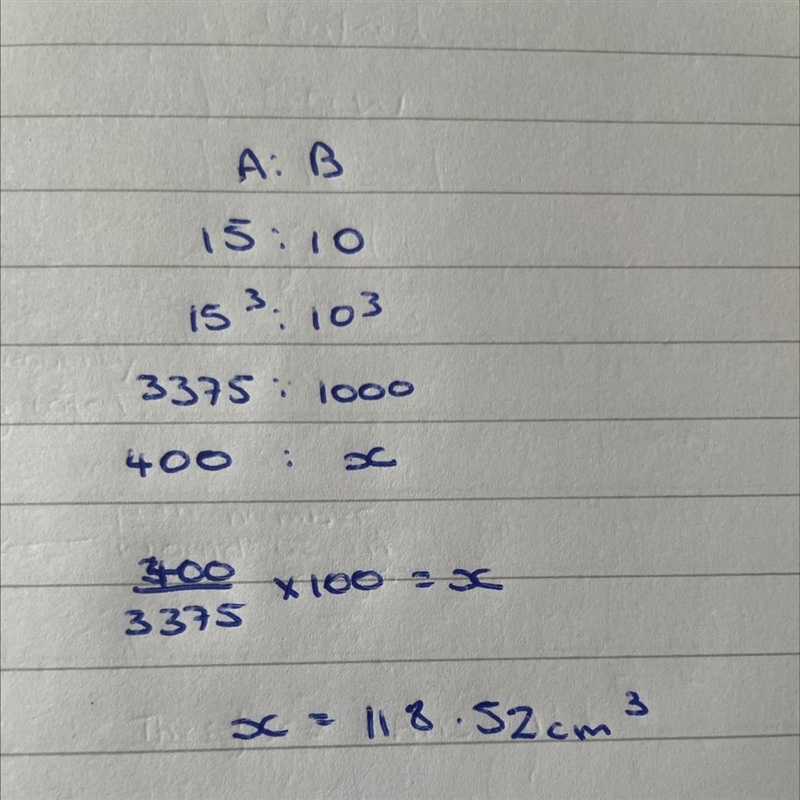 A: B
15 : 10
15³: 10³
3375 : 1000
400 : x
400/3375 ×100 = x
x = 118.52cm³